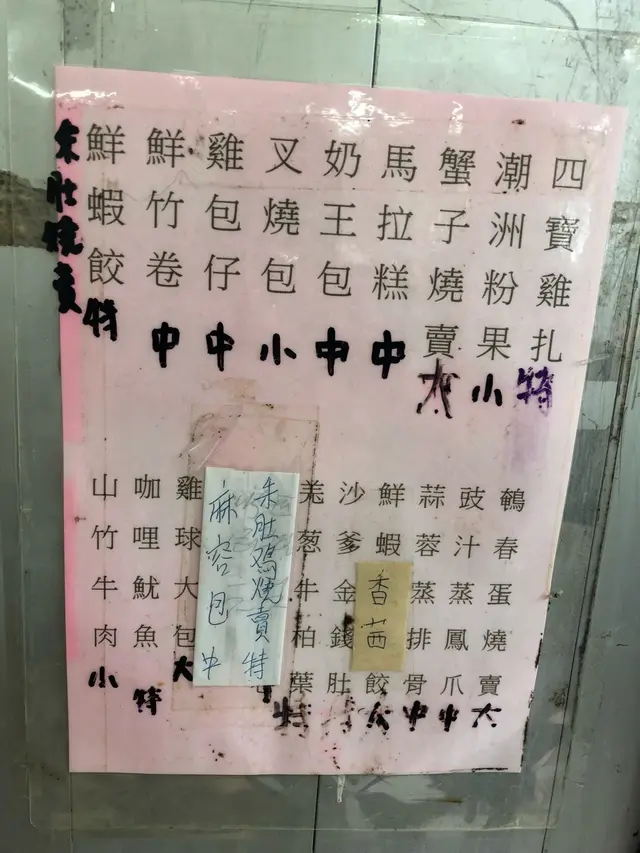 四寶雞扎特
潮洲粉果小
蟹子燒賣大
馬拉糕中
奶王包中
叉燒包小
雞包仔中
鮮竹卷中
鮮蝦餃特
朱肚燒賣
鵪春蛋燒賣大
豉汁蒸鳳爪中
蒜蓉蒸排骨中
鮮蝦香茜餃大
沙爹金錢肚特
羌葱牛柏葉特
朱肚鸡燒賣特
麻容包中
雞球大包大
咖哩魷魚特
山竹牛肉小